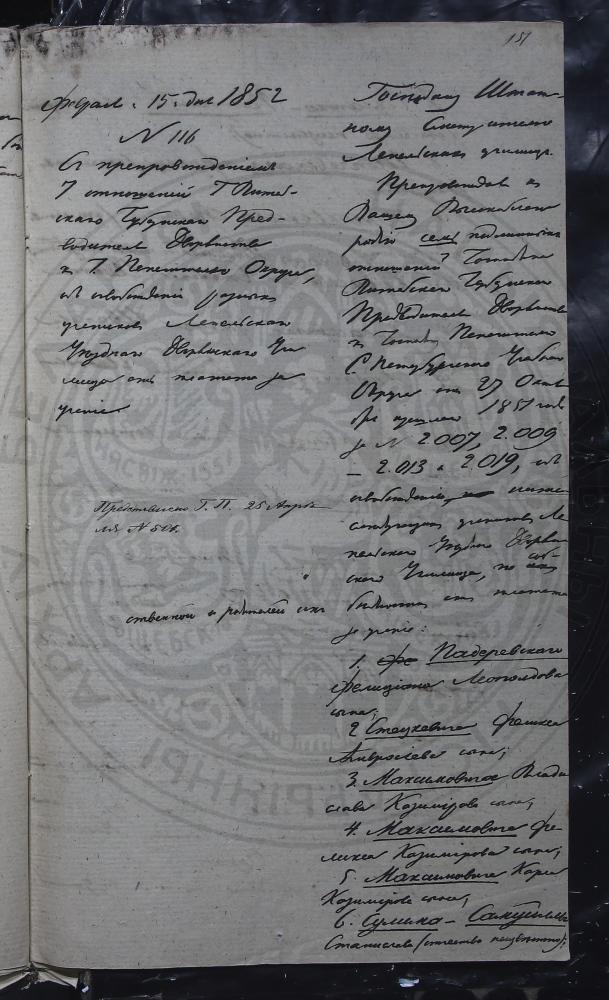 151
Феврал. 15. дня 1852
N 116
Съ препровожденіемъ
7 отношеній Г. Витеб-
скаго Губернскаго Пред-
водителя Дворянства
къ Г. Попечителю Округа,
объ освобожденіи разныхъ
учениковъ Лепельскаго
Уѣзднаго Дворянскаго Учи
лища отъ платежа за
ученіе
Представлено Г. П. 25 Апрѣ
ля N 501.
ственной и родителей ихъ
Господину Штат-
ному Смотрителю
Лепельскаго училища.
Препровождая къ
Вашему Высокобла-
родію семь подлинныхъ
отношеній Господина
Витебскаго Губернскаго
Предводителя Дворянства
къ Господину Попечителю
С. Петербургскаго Учебнаго
Округа отъ 27 Октя
бря прошлаго 1851 года
за N 2.007, 2.009
– 2.013 и 2.019, объ
освобожденіи ниже
слѣдующихъ учениковъ Ле
пельскаго Уѣзднаго Дворян
скаго Училища, по соб-
бѣдности отъ платежа
за ученіе:
1. Падеревскаго
Фелиціана Леопольдова
сына;
2 Стецкевича Феликса
Амвросіева сына;
3. Максимовича Влади
слава Казимірова сына;
4. Максимовича Фе
ликса Казимірова сына;
5. Максимовича Карла
Казимірова сына;
6. Сулима – Самуйлы
Станислава (отчество неизвѣстно);